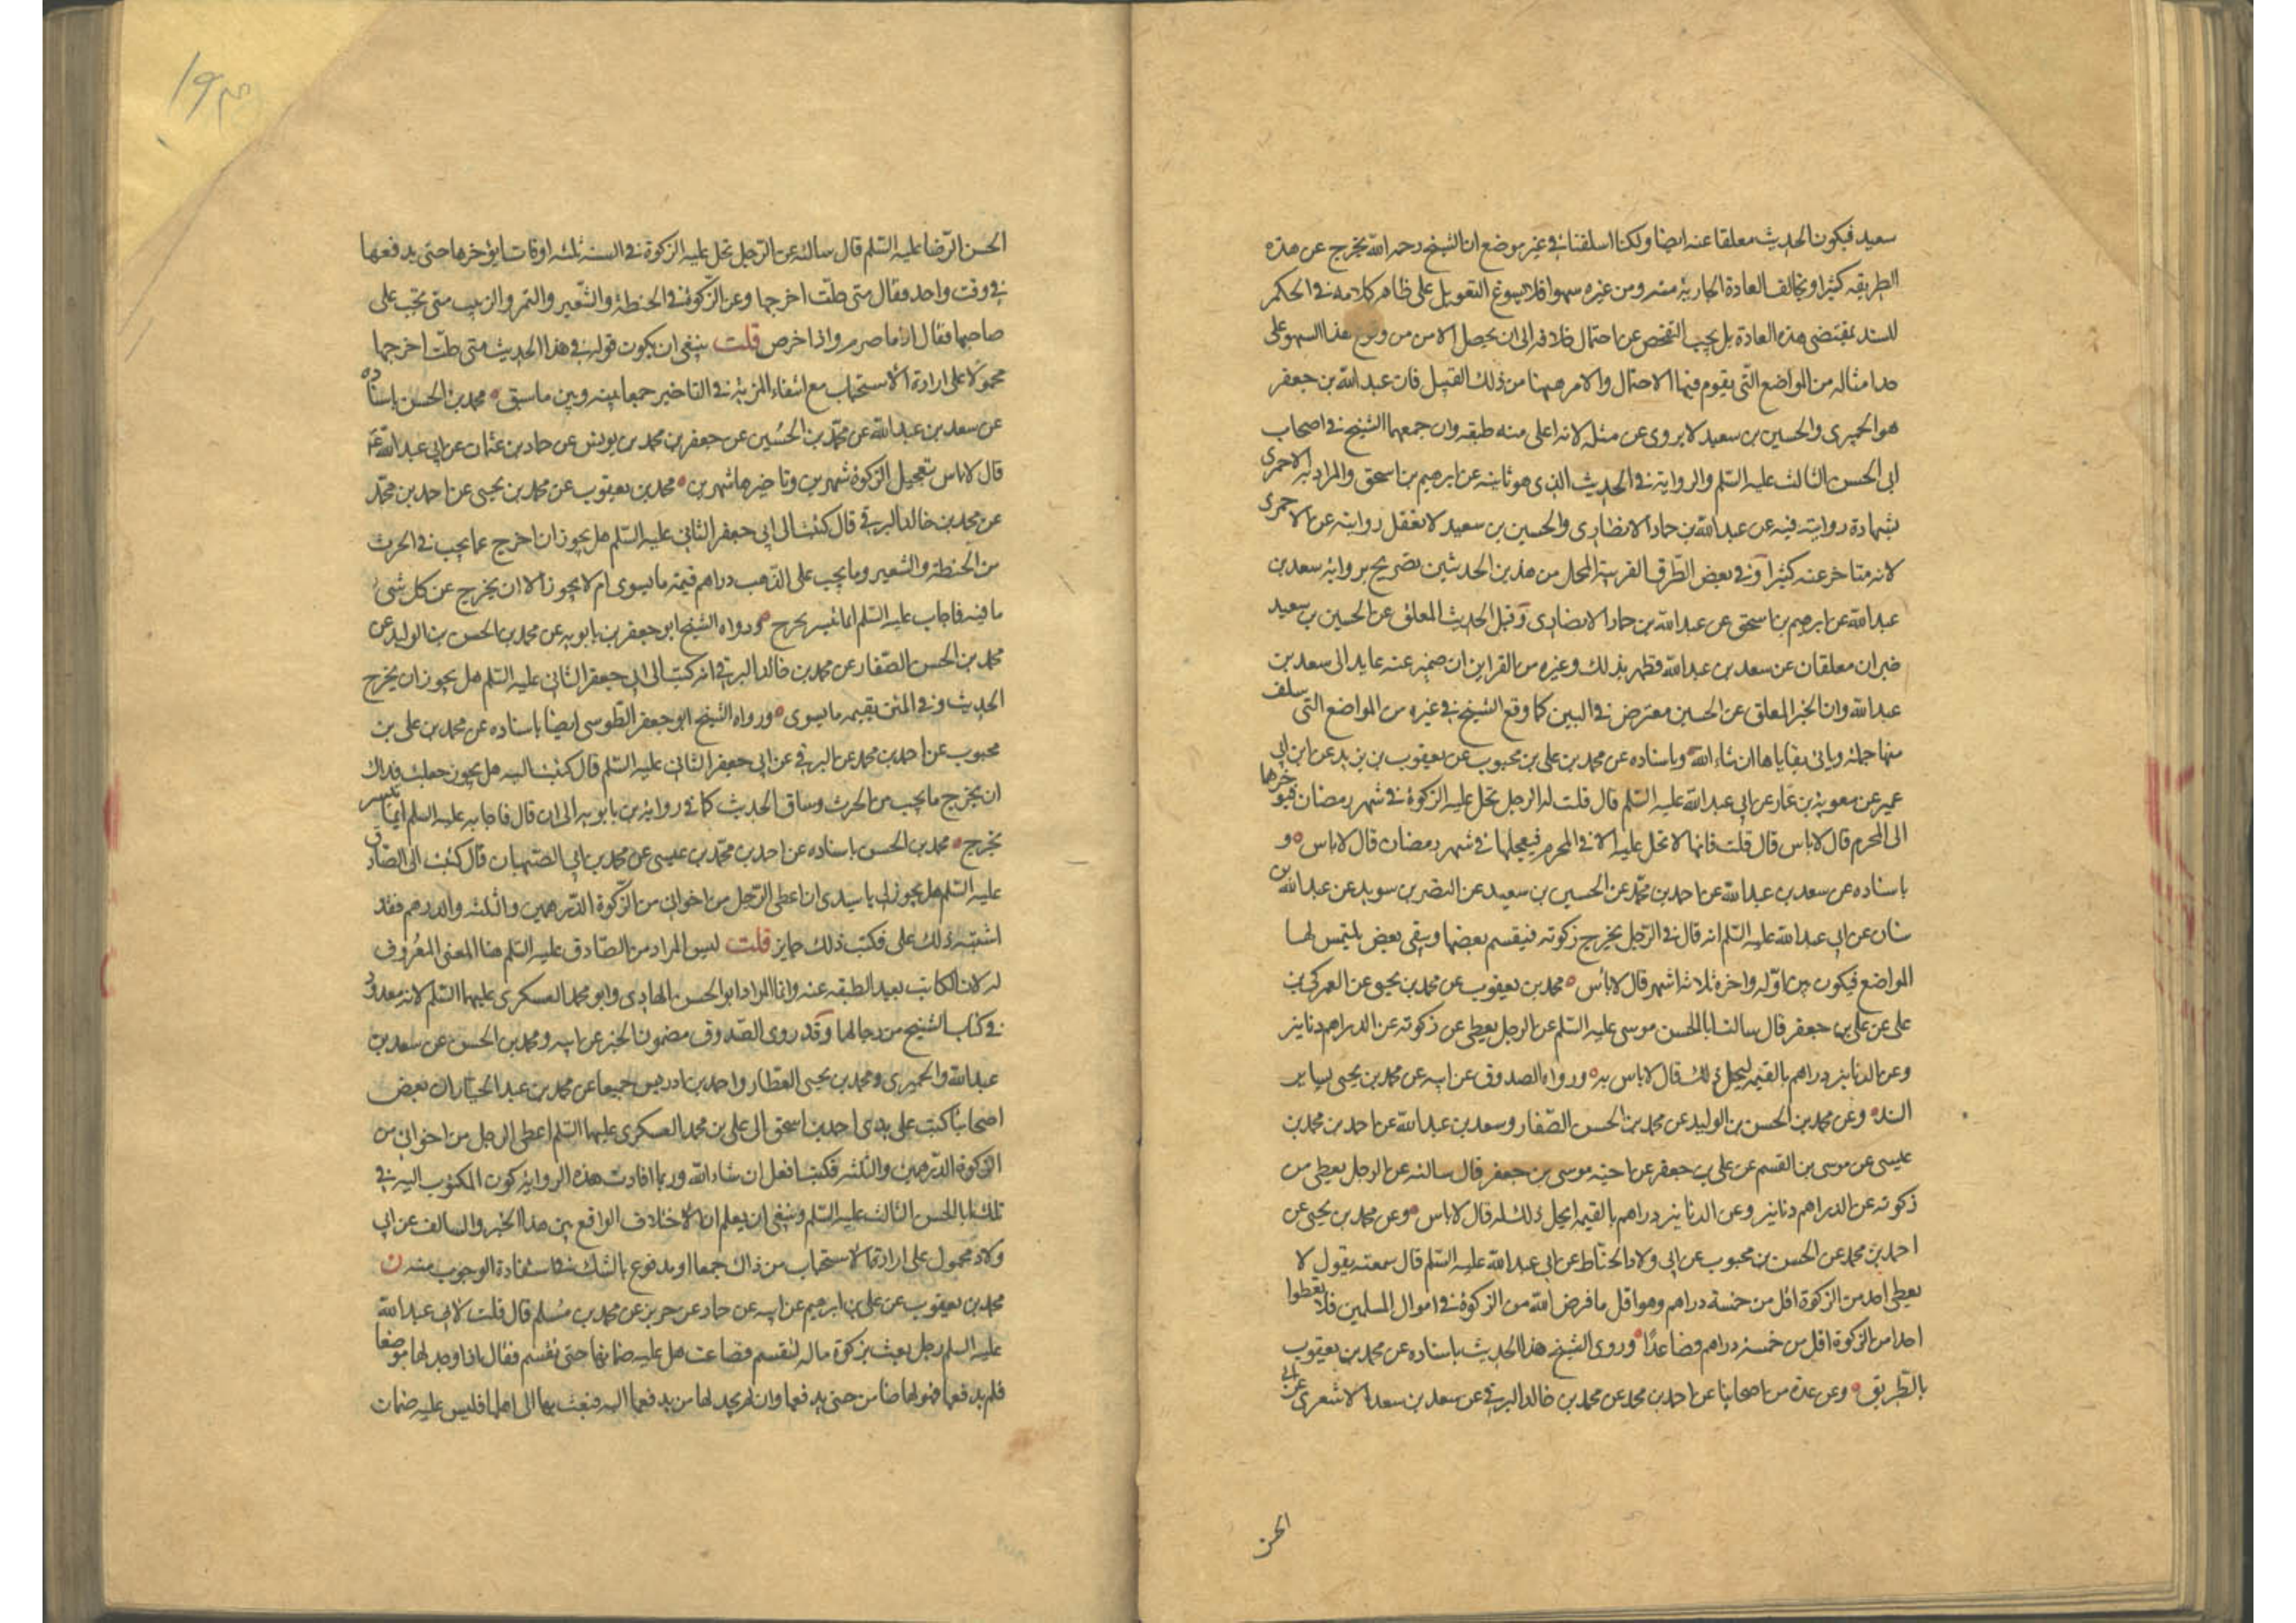 سعيد فيكون الحديث معلقا عنه ايضا ولكنا اسلفنا في غير موضع ان الشيخ رحمه الله يخرج عن هذه
الطريقه كثيرا ويخالف العادة الجارية منه ومن غيره سهوا فلا يسوغ التعويل على ظاهر كلامه في الحكم
للسند بمقتضى هذه العادة بل يجب التفحص عن احتمال خلافه الى ان يحصل الامن من وقوع هذا السهو على
حد امثاله من المواضع التي يقوم فيها الاحتمال والامر ههنا من ذلك القبيل فان عبد الله بن جعفر
هو الحميري والحسين بن سعيد لا يروى عن مثله لانه اعلى منه طبقه وان جمعهما الشيخ في اصحاب
ابى الحسن الثالث عليه السلم والرواية في الحديث الذى هو ثانيه عن ابرهيم بن اسحق والمراد به الاحمرى
بشهادة روايته فيه عن عبد الله بن حماد الانصارى والحسين بن سعيد لا تعقل روايته عن الاحمرى
لانه متاخر عنه كثيرا وفي بعض الطرق القريبة المحل من هذين الحديثين تصريح برواية سعد بن
عبد الله عن ابرهيم بن اسحق عن عبد الله بن حماد الانصارى وقبل الحديث المعلق عن الحسين بن سعيد
خبران معلقان عن سعد بن عبد الله فظهر بذلك وغيره من القراين ان ضمير عنه عايد الى سعد بن
عبد الله وان الخبر المعلق عن الحسين معترض في البين كما وقع الشيخ في غيره من المواضع التي سلف
منها جملة وياتى بقاياها ان شاء الله وباسناده عن محمد بن على بن محبوب عن يعقوب بن يزيد عن ابن ابى
عمير عن معوية بن عمار عن ابى عبد الله عليه السلم قال قلت له الرجل تحل عليه الزكوة في شهر رمضان فيؤخرها
الى المحرم قال لا باس قال قلت فانها لا تحل عليه الا في المحرم فيعجلها في شهر رمضان قال لا باس و
باسناده عن سعد بن عبد الله عن احمد بن محمد عن الحسين بن سعيد عن النضر بن سويد عن عبد الله بن
سنان عن ابى عبد الله عليه السلم انه قال في الرجل يخرج زكوته فيقسم بعضها ويبقى بعض يلتمس لها
المواضع فيكون بين اوله واخره ثلاثة اشهر قال لا بأس محمد بن يعقوب عن محمد بن يحيى عن العمركى بن
على عن على بن جعفر قال سالت ابا الحسن موسى عليه السلم عن الرجل يعطى عن زكوته عن الدراهم دنانير
وعن الدنانير دراهم بالقيمه ليحل ذلك قال لا باس به ورواه الصدوق عن ابيه عن محمد بن يحيى بساير
السند وعن محمد بن الحسن بن الوليد عن محمد بن الحسن الصفار وسعد بن عبد الله عن احمد بن محمد بن
عيسى عن موسى بن القسم عن على بن جعفر عن اخيه موسى بن جعفر قال سالته عن الرجل يعطى من
زكوته عن الدراهم دنانير وعن الدنانير دراهم بالقيمه ايحل ذلك له قال لا باس وعن محمد بن يحيى عن
احمد بن محمد عن الحسن بن محبوب عن ابى ولاد الحناط عن ابى عبد الله عليه السلم قال سمعته يقول لا
يعطى احد من الزكوة اقل من خمسة دراهم وهو اقل ما فرض الله من الزكوة في اموال المسلمين فلا تعطوا
احدا من الزكوة اقل من خمسة دراهم فصاعدًا وروى الشيخ هذا الحديث باسناده عن محمد بن يعقوب
بالطريق وعن عدة من اصحابنا عن احمد بن محمد عن محمد بن خالد البرقى عن سعد بن سعد الاشعرى عن ابى
الحسن
الحسن الرضا عليه السلم قال سالته عن الرجل تحل عليه الزكوة في السنه ثلثه اوقات ايؤخرها حتى يدفعها
في وقت واحد فقال متى حلت اخرجها وعن الزكوة في الحنطة والشعير والتمر والزبيب متى تجب على
صاحبها فقال اذا ما صرم واذا خرص قلت ينبغى ان يكون قوله في هذا الحديث متى حلت اخرجها
محمولا على ارادة الاستحباب مع انتفاء المزية في التاخير جمعا بينه وبين ما سبق محمد بن الحسن باسناده
عن سعد بن عبد الله عن محمد بن الحسين عن جعفر بن محمد بن يونس عن حماد بن عثمان عن ابى عبد الله ع
قال لا باس بتعجيل الزكوة شهرين وتاخيرها شهرين محمد بن يعقوب عن محمد بن يحيى عن احمد بن محمد
عن محمد بن خالد البرقى قال كتبت الى ابى جعفر الثانى عليه السلم هل يجوز ان اخرج عما يجب في الحرث
من الحنطة والشعير وما يجب على الذهب دراهم قيمة ما يسوى ام لا يجوز الا ان يخرج عن كل شئ
ما فيه فاجاب عليه السلم ايما تيسر يخرج ورواه الشيخ ابو جعفر بن بابويه عن محمد بن الحسن بن الوليد عن
محمد بن الحسن الصفار عن محمد بن خالد البرقى انه كتب الى ابى جعفر الثانى عليه السلم هل يجوز ان يخرج
الحديث وفي المتن بقيمه ما يسوى ورواه الشيخ ابو جعفر الطوسى ايضا باسناده عن محمد بن على بن
محبوب عن احمد بن محمد عن البرقى عن ابى جعفر الثانى عليه السلم قال كتبت اليه هل يجوز جعلت فداك
ان يخرج ما يجب من الحرث وساق الحديث كما في رواية بن بابويه الى ان قال فاجابه عليه السلم ايما تيسر
يخرج محمد بن الحسن باسناده عن احمد بن محمد بن عيسى عن محمد بن ابى الصهبان قال كتبت الى الصادق
عليه السلم هل يجوز لى يا سيدى ان اعطى الرجل من اخوانى من الزكوة الدرهمين والثلثه والدرهم فقد
اشتبه ذلك على فكتب ذلك جايز قلت ليس المراد من الصادق عليه السلم هنا المعنى المعروف
له لان الكاتب بعيد الطبقه عنه وانما المراد ابو الحسن الهادى وابو محمد العسكرى عليهما السلم لانه معدود
في كتاب الشيخ من رجالهما وقد روى الصدوق مضمون الخبر عن ابيه ومحمد بن الحسن عن سعد بن
عبد الله والحميرى ومحمد بن يحيى العطار واحمد بن ادريس جميعا عن محمد بن عبد الجبار ان بعض
اصحابنا كتب على يدى احمد بن اسحق الى على بن محمد العسكرى عليهما السلم اعطى الرجل من اخوانى من
الزكوة الدرهمين والثلثه فكتب افعل ان شاء الله وربما افادت هذه الرواية كون المكتوب اليه في
تلك ابا الحسن الثالث عليه السلم وينبغى ان يعلم ان الاختلاف الواقع بين هذا الخبر والسالف عن ابى
ولاد محمول على ارادة الاستحباب من ذاك جمعا او مدفوع بالشك في استفادة الوجوب منه ن
محمد بن يعقوب عن على بن ابرهيم عن ابيه عن حماد عن حريز عن محمد بن مسلم قال قلت لابى عبد الله
عليه السلم رجل بعث بزكوة ماله لتقسم فضاعت هل عليه ضمانها حتى تقسم فقال اذا وجد لها موضعا
فلم يدفعها فهو لها ضامن حتى يدفعها وان لم يجد لها من يدفعها اليه فبعث بها الى اهلها فليس عليه ضمان